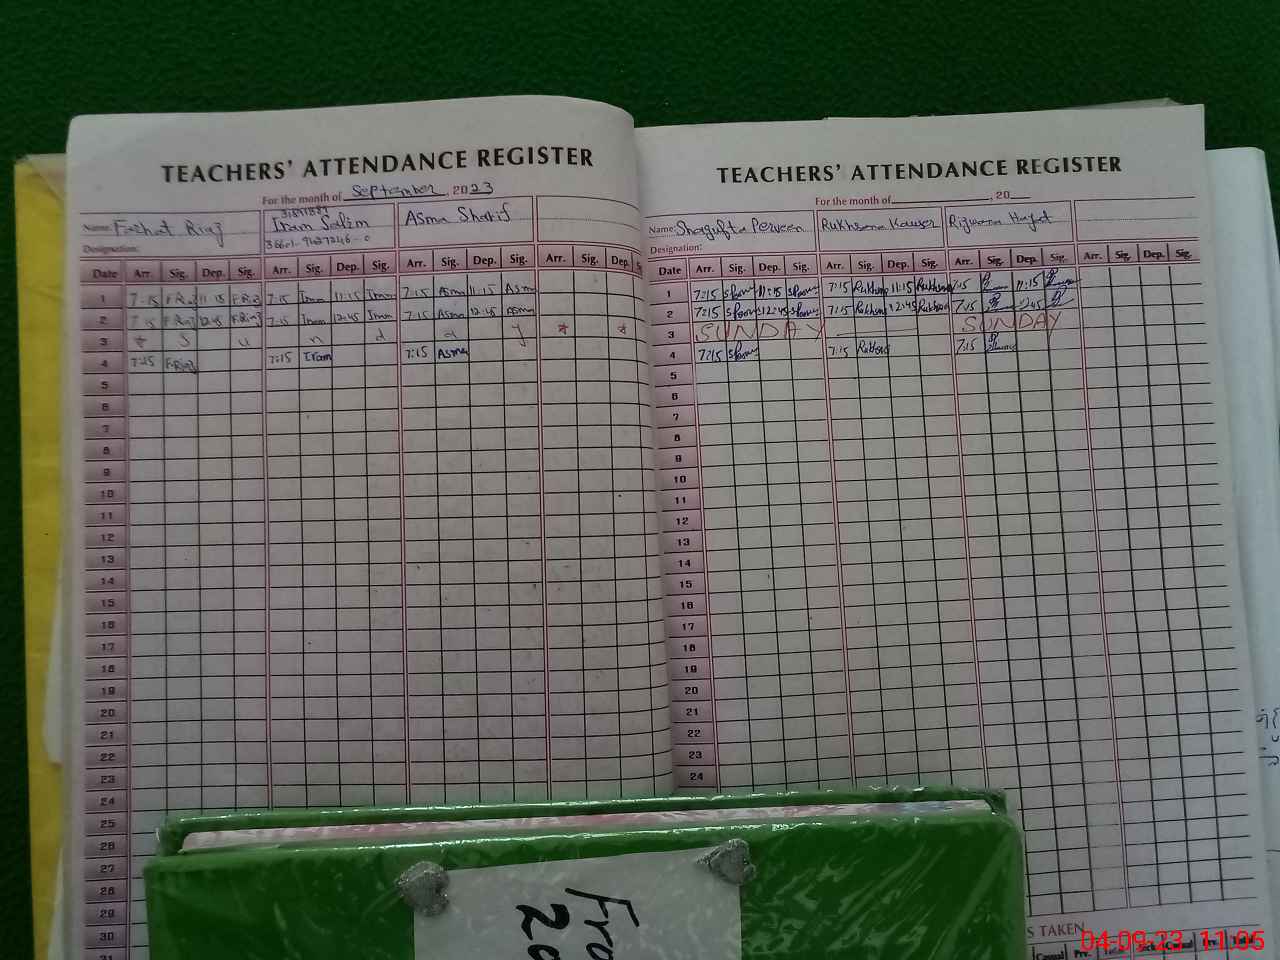 TEACHERS' ATTENDANCE REGISTER
For the month of September, 2023
Name: Farhat Riaz Iram Salim Asma Sharif
Designation:
Date Arr. Sig. Dep. Sig. Arr. Sig. Dep. Sig. Arr. Sig. Dep. Sig. Arr. Sig. Dep. S
1 7:15 F.Riaz 11:15 F.Riaz 7:15 Iram 11:15 Iram 7:15 Asma 11:15 Asma
2 7:15 F.Riaz 12:45 F.Riaz 7:15 Iram 12:45 Iram 7:15 Asma 12:45 Asma
3 * S u n d a y * *
4 7:15 F.Riaz 7:15 Iram 7:15 Asma
5
6
7
8
9
10
11
12
13
14
15
16
17
18
19
20
21
22
23
24
25
26
27
28
29
30
31
TEACHERS' ATTENDANCE REGISTER
For the month of , 20
Name: Shagufta Perveen Rukhsana Kauser Rizwana Hayat
Designation:
Date Arr. Sig. Dep. Sig. Arr. Sig. Dep. Sig. Arr. Sig. Dep. Sig. Arr. Sig. Dep. Sig.
1 7:15 11:15 7:15 Rukhsana 11:15 Rukhsana 7:15 11:15
2 7:15 12:45 7:15 Rukhsana 12:45 Rukhsana 7:15 12:45
3 SUNDAY SUNDAY
4 7:15 7:15 Rukhsana 7:15
5
6
7
8
9
10
11
12
13
14
15
16
17
18
19
20
21
22
23
24
S TAKEN
Casual Prv. Total Casual Prv. Total
Fro
20
04-09-23 11:05